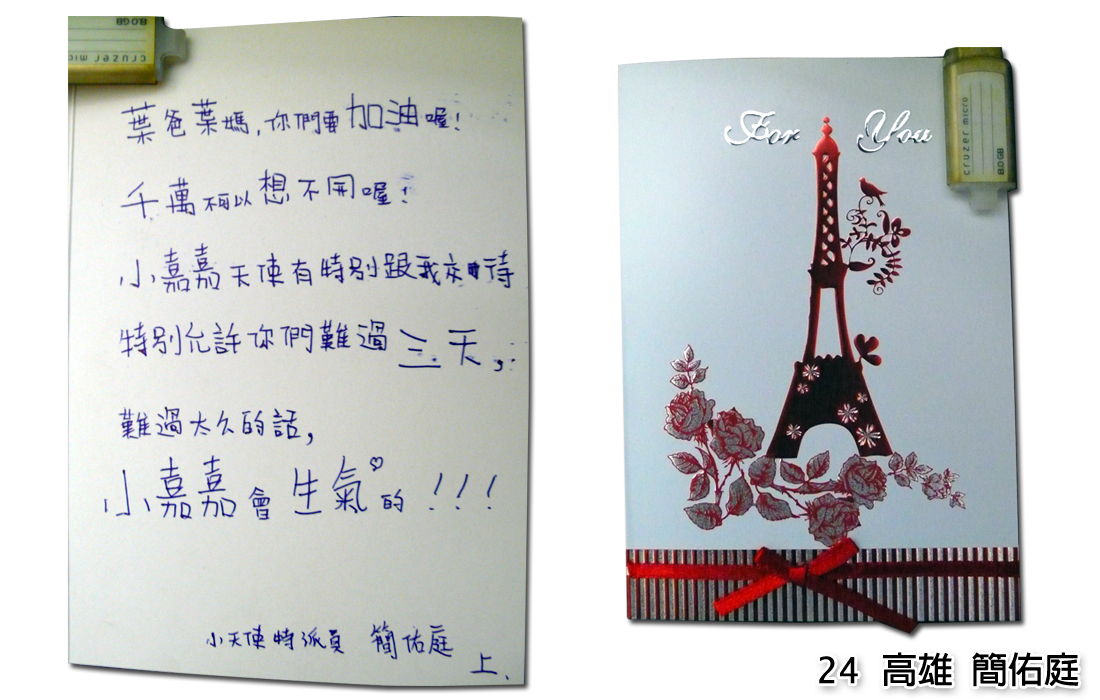 8.0GB
cruzer micro
葉爸葉媽,你們要加油喔!
千萬不可以想不開喔!
小嘉嘉天使有特別跟我交待
特別允許你們難過三天,
難過太久的話,
小嘉嘉會生氣的!!!
小天使特派員 簡佑庭
上.
For You
cruzer micro
8.0GB
24 高雄 簡佑庭